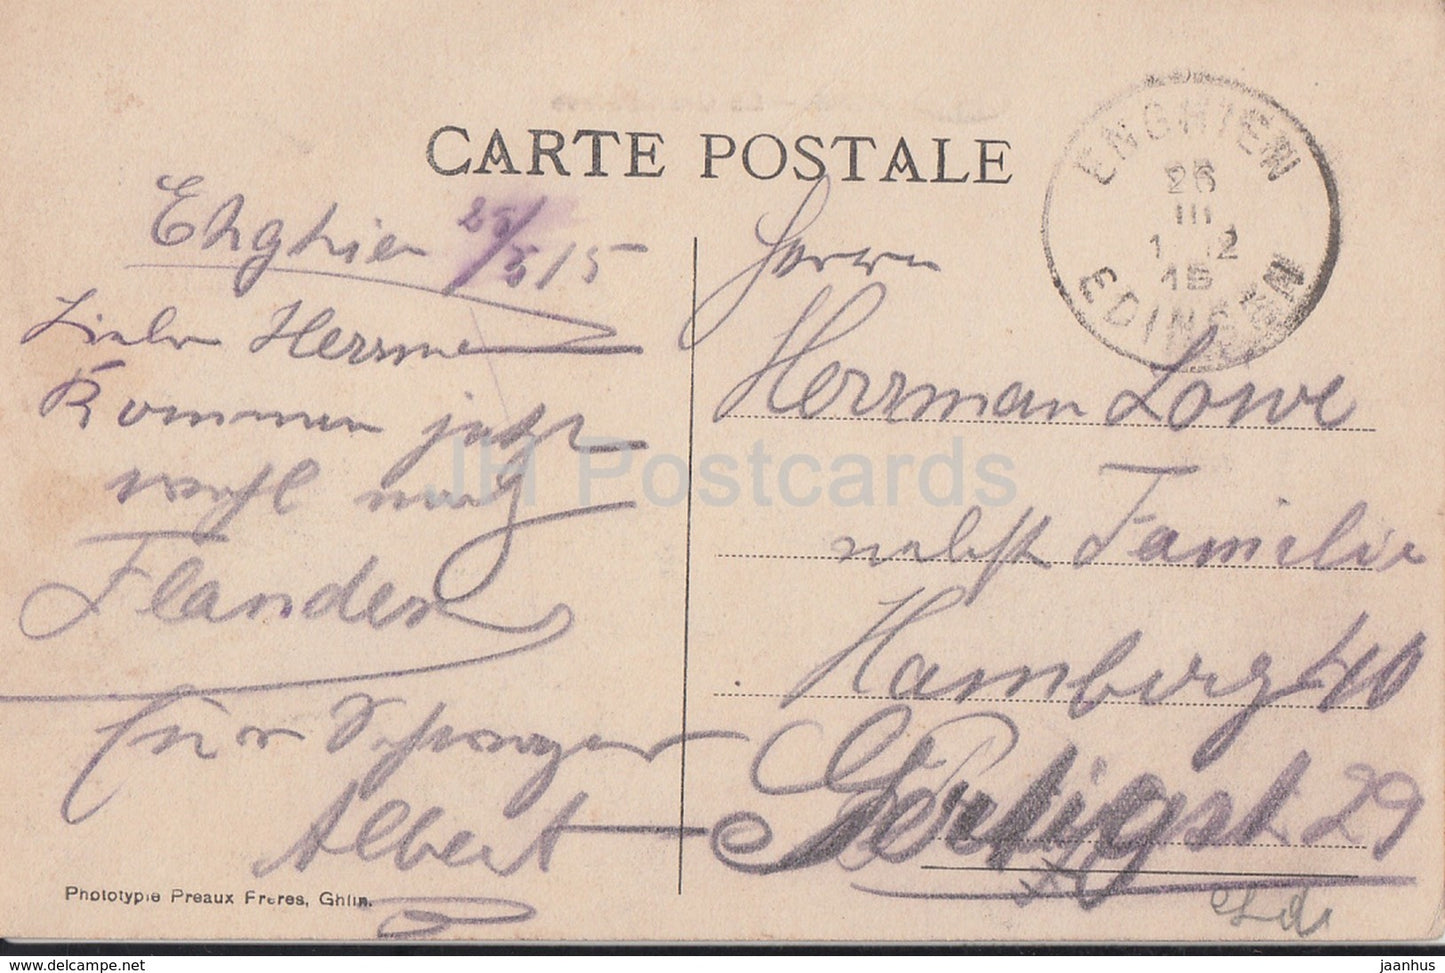 CARTE POSTALE
ENGHIEN
26
III
12
15
EDINGEN
Enghien 25/3 15
Lieber Herrman
Kommen jetzt
wohl nach
Flandern
Albert
Herrn
Herrman Löwe
nebst Familie
Hamburg 40
29
Phototypie Preaux Freres, Ghlin.
JH Postcards
www.delcampe.net
jaanhus